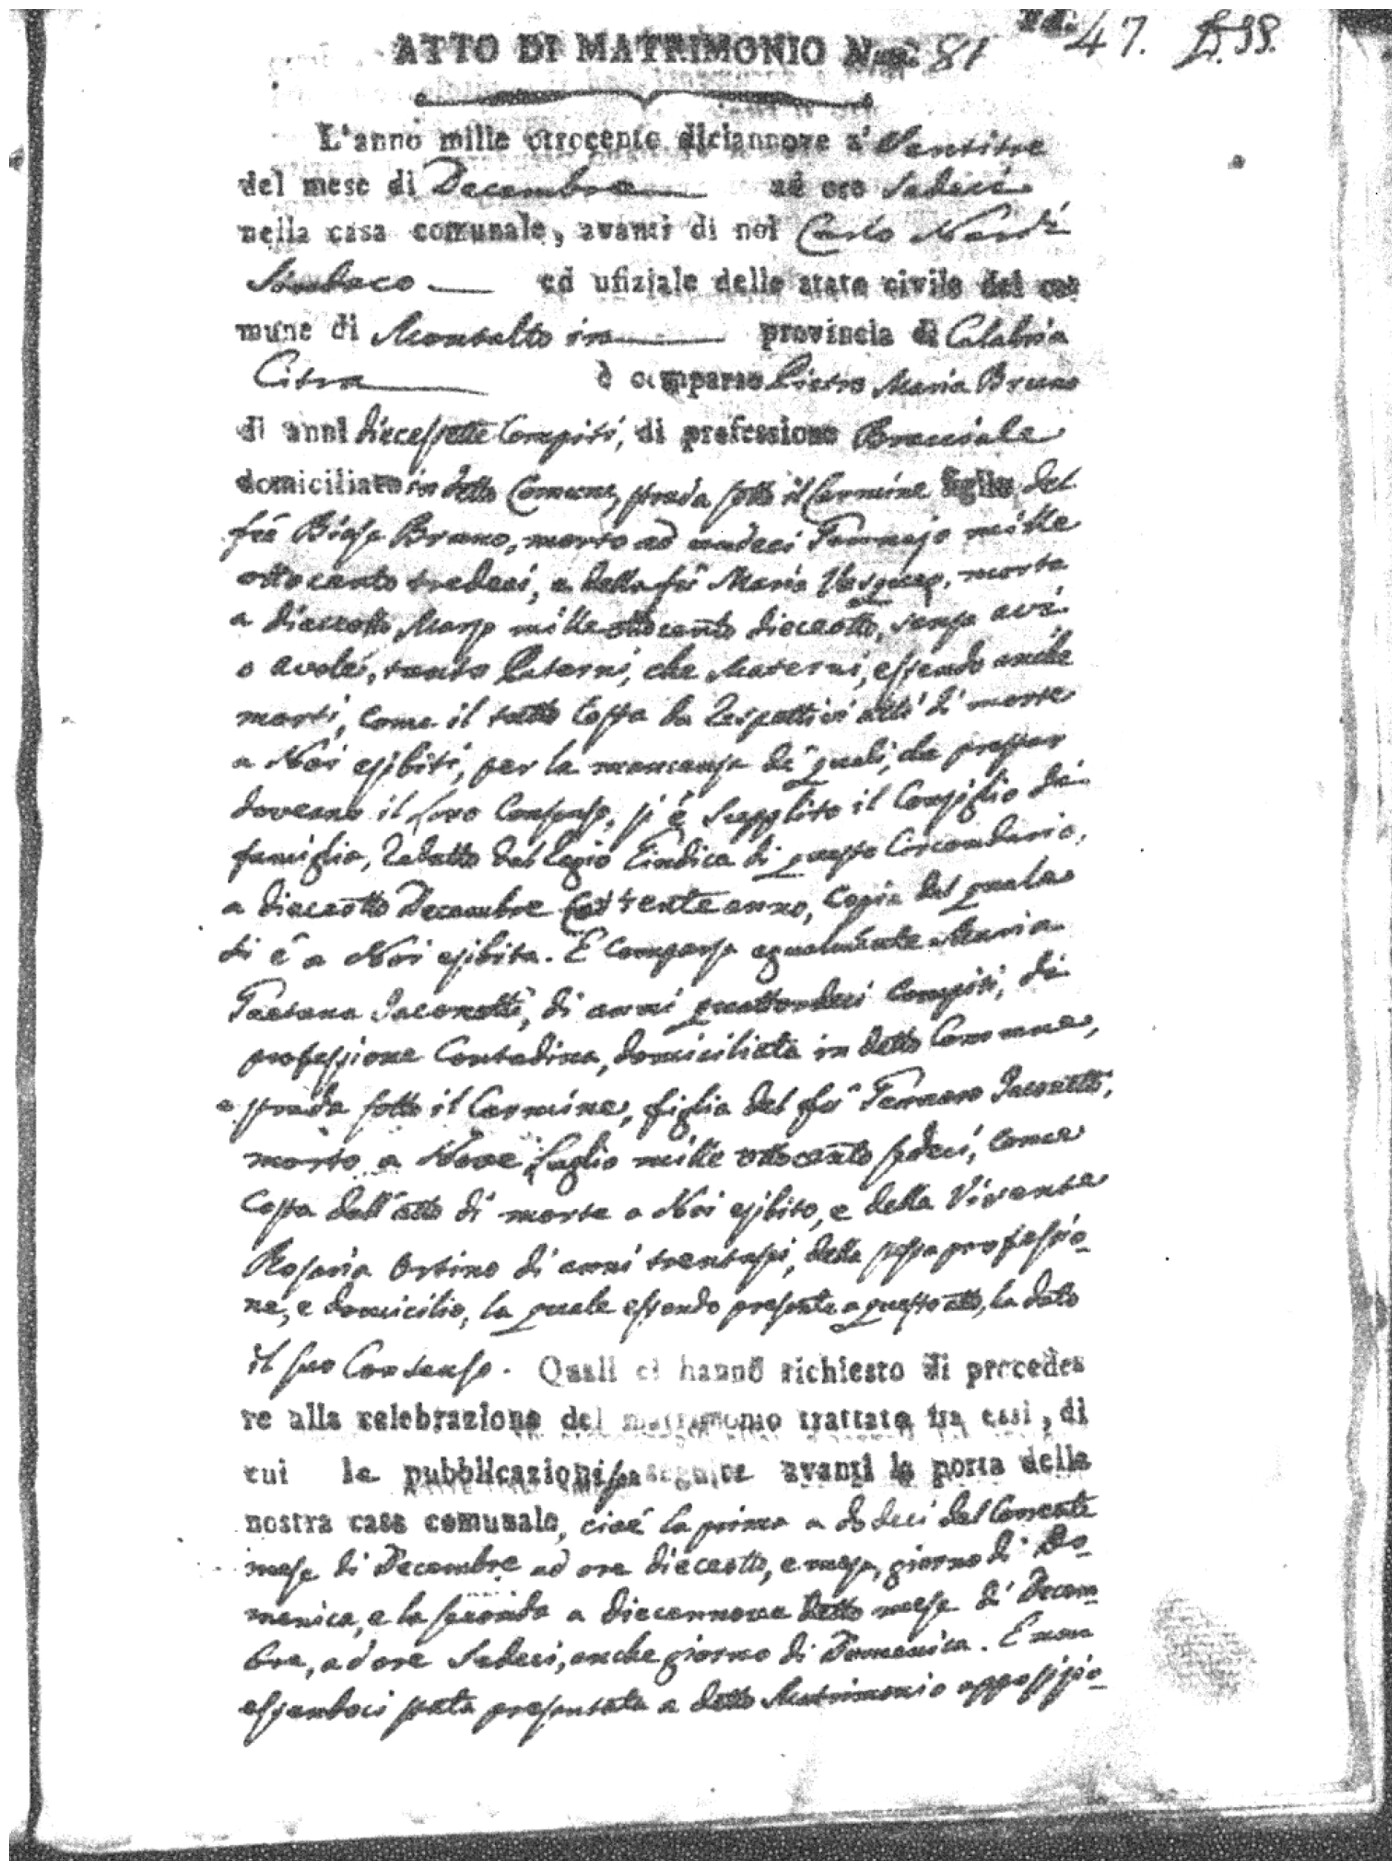 47.
ATTO DI MATRIMONIO Num. 81
L'anno mille ottocento diciannove a' Ventitre
del mese di Decembre ad ore Sedeci
nella casa comunale, avanti di noi Carlo Nardi
Sindaco ed ufiziale dello stato civile del co-
mune di Montalto in provincia di Calabria
Citra è comparso Pietro Maria Bruno
di anni diecessette Compiti, di professione Bracciale
domiciliato in detto Comune, strada sotto il Carmine figlio del
fù Biase Bruno, morto ad undeci Gennajo mille
ottocento tredeci, e della fù Maria morta
a dieceotto Marzo mille ottocento dieceotto, senza avi,
o avole, tanto Paterni, che Materni, essendo anche
morti, come il tutto Costa da respettivi atti di morte
a Noi esibiti, per la mancanza de' quali, che prestar
doveano il loro Consenso, si è Supplito il Consiglio di
famiglia, redatto dal Regio Giudice di questo Circondario,
a dieceotto Decembre Corrente anno, Copia del quale
si è a Noi esibita. E comparsa egualmente Maria
Gaetana Iaconetti, di anni quattordeci compiti, di
professione Contadina, domiciliata in detto Comune,
e strada sotto il Carmine, figlia del fù Gennaro Iaconetti,
morto a Nove Luglio mille ottocento sedeci, come
Costa dall'atto di morte a Noi esibito, e della Vivente
Rosaria Ortino di anni trentasei, della stessa professio-
ne, e domicilio, la quale essendo presente a questo atto, ha dato
il suo Consenso. Quali ci hanno richiesto di procede-
re alla celebrazione del matrimonio trattato fra essi, di
cui le pubblicazioni son seguite avanti la porta della
nostra casa comunale, cioè la prima a dodeci del Corrente
mese di Decembre ad ore dieceotto, e mezza, giorno di Do-
menica, e la seconda a diecennove detto mese di Decem-
bre, ad ore Sedeci, anche giorno di Domenica. E non
essendoci stata presentata a detto Matrimonio opposizio-